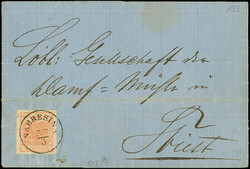 Löbl: Gesellschaft der
Dampf=Mühle in
Triest
NABRESINA